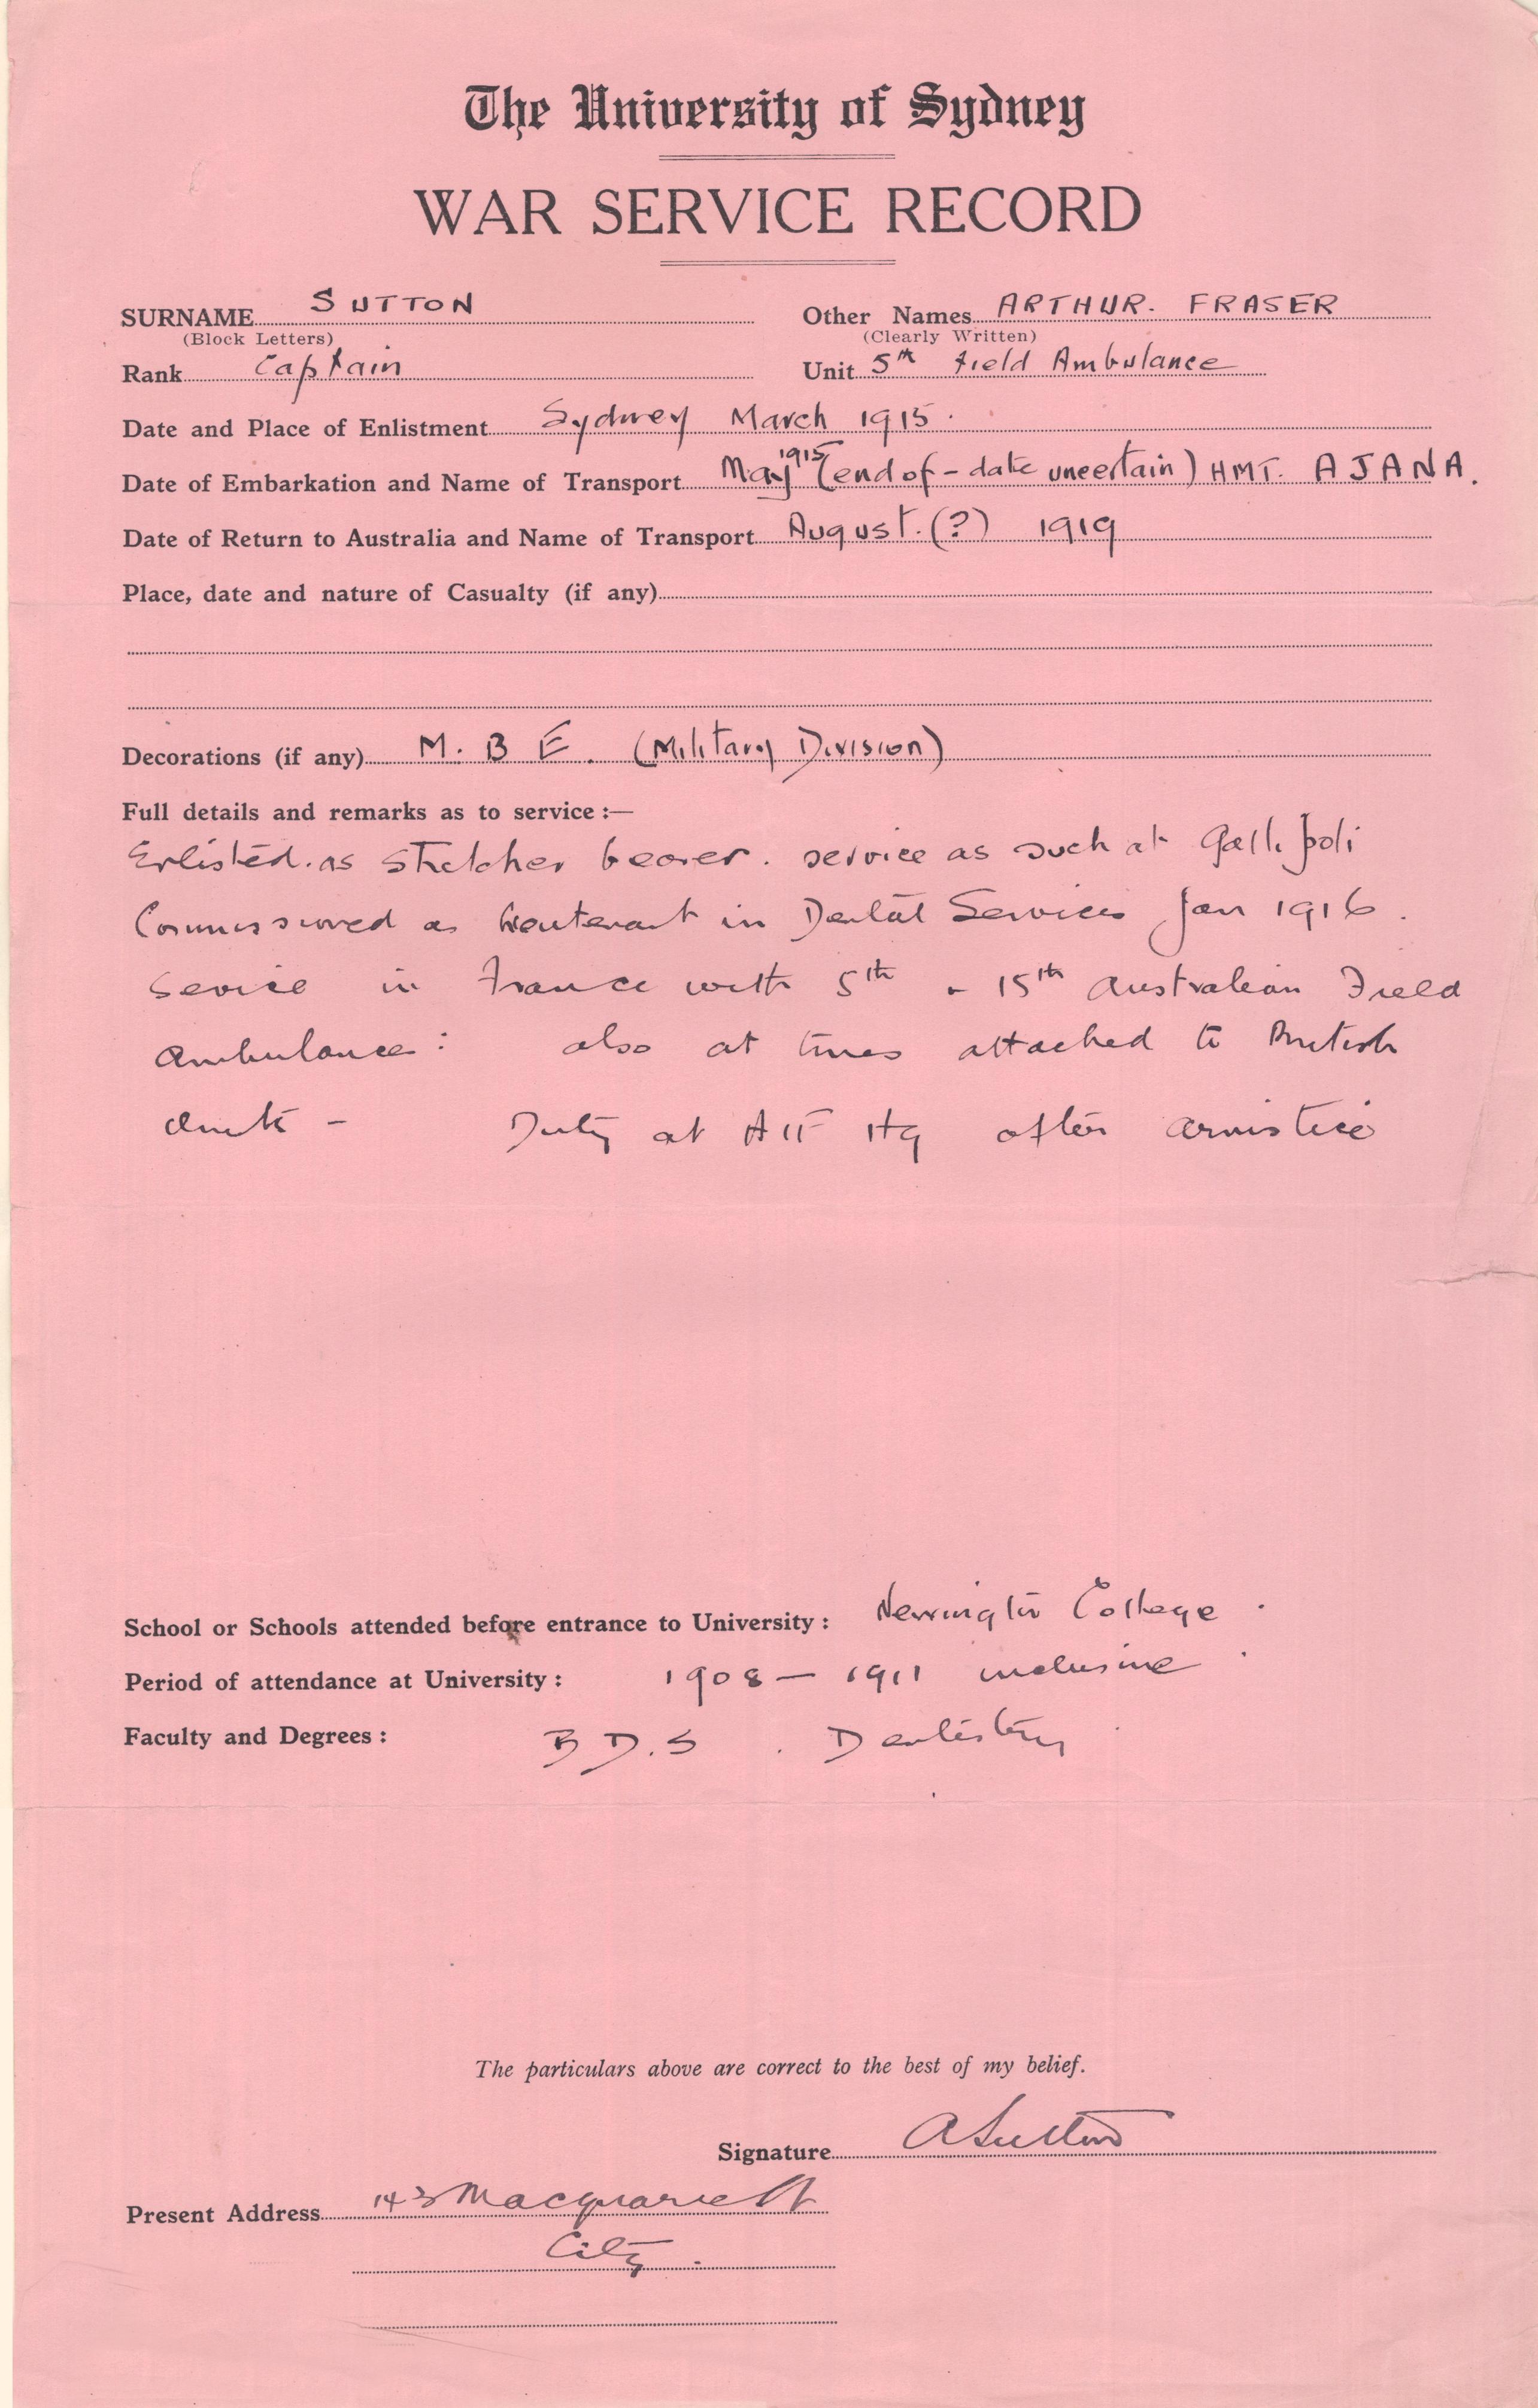 The University of Sydney
WAR SERVICE RECORD
SURNAME SUTTON Other Names ARTHUR. FRASER
(Block Letters) (Clearly Written)
Rank Captain Unit 5th Field Ambulance
Date and Place of Enlistment Sydney March 1915.
Date of Embarkation and Name of Transport May 1915 (end of - date uncertain) HMT. AJANA.
Date of Return to Australia and Name of Transport August. (?) 1919
Place, date and nature of Casualty (if any)
Decorations (if any) M. B E. (Military Division)
Full details and remarks as to service :—
Enlisted. as stretcher bearer. service as such at Gallipoli
Commissioned as lieutenant in Dental Services Jan 1916.
Service in France with 5th & 15th Australian Field
Ambulance: also at times attached to British
Units - Duty at AIF Hq after armistice
School or Schools attended before entrance to University : Newington College.
Period of attendance at University : 1908 - 1911 inclusive.
Faculty and Degrees : B D. S. Dentistry
The particulars above are correct to the best of my belief.
Signature A Sutton
Present Address 143 Macquarie St
City.